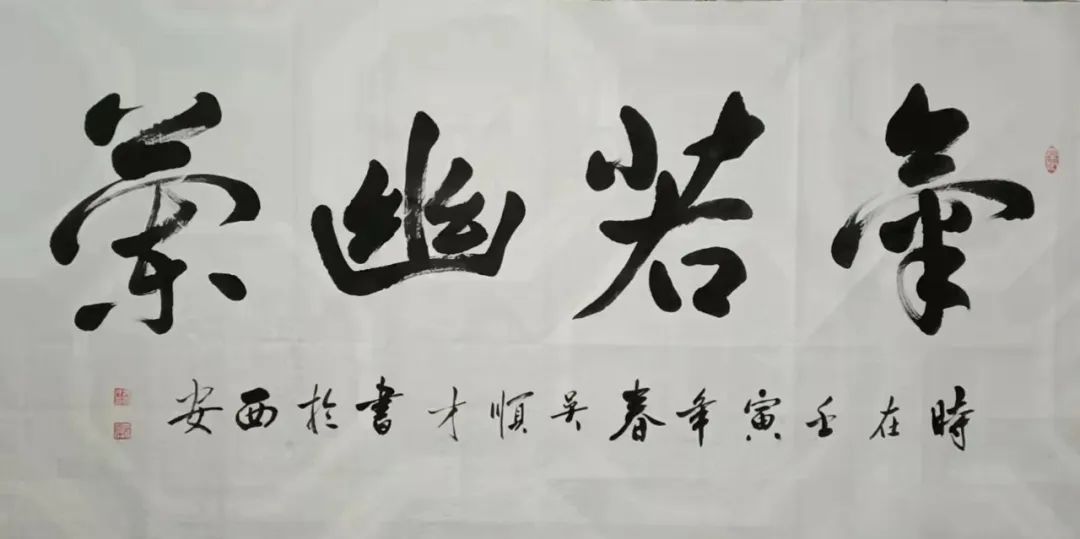 氣若幽蘭
時在壬寅年春吴順才書於西安